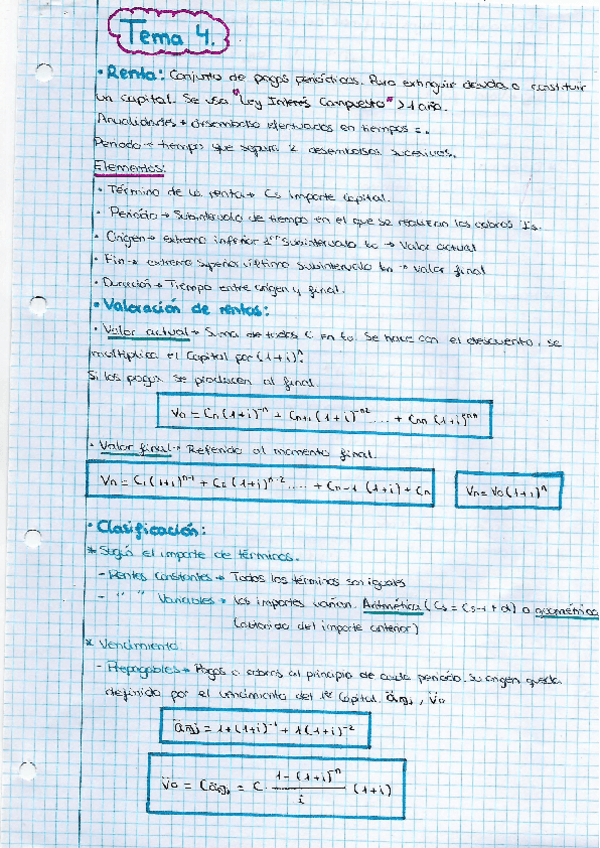 Tema 4.
· Renta: Conjunto de pagos periódicos. Para extinguir deuda o constituir
un capital. Se usa "Ley Interés Compuesto" > 1 año.
Anualidades → desembolso efectuados en tiempos =.
Periodo → tiempo que separa 2 desembolsos sucesivos.
Elementos:
· Término de la renta → Cs importe capital.
· Periódo → Subintervalo de tiempo en el que se realizan los cobros Is.
· Origen → extremo inferior 1er subintervalo to → Valor actual
· Fin → extremo superior último subintervalo tn → Valor final
· Duración → Tiempo entre origen y final.
· Valoración de rentas:
· Valor actual → Suma de todos C en to. Se hace con el descuento, se
multiplica el Capital por (1+i)ⁿ.
Si los pagos se producen al final.
· Valor final → Referido al momento final.
Vn = C₁(1+i)ⁿ⁻¹ + C₂(1+i)ⁿ⁻² .... + Cn-1 (1+i) + Cn
Vn = Vo(1+i)ⁿ
· Clasificación:
* Según el importe de términos.
- Rentas constantes → Todos los términos son iguales
- " " Variables → los importes varían. Aritmética (Cs = Cs-1 + d) o geométrica
del importe anterior)
* Vencimiento
- Prepagables → Pagos o cobros al principio de cada periodo. Su origen queda
definido por el vencimiento del 1er Capital. än┐i , V̈o
än┐i = 1+(1+i)⁻¹ + 1(1+i)⁻²
V̈o = C än┐i = C · 1-(1+i)⁻ⁿ / i (1+i)